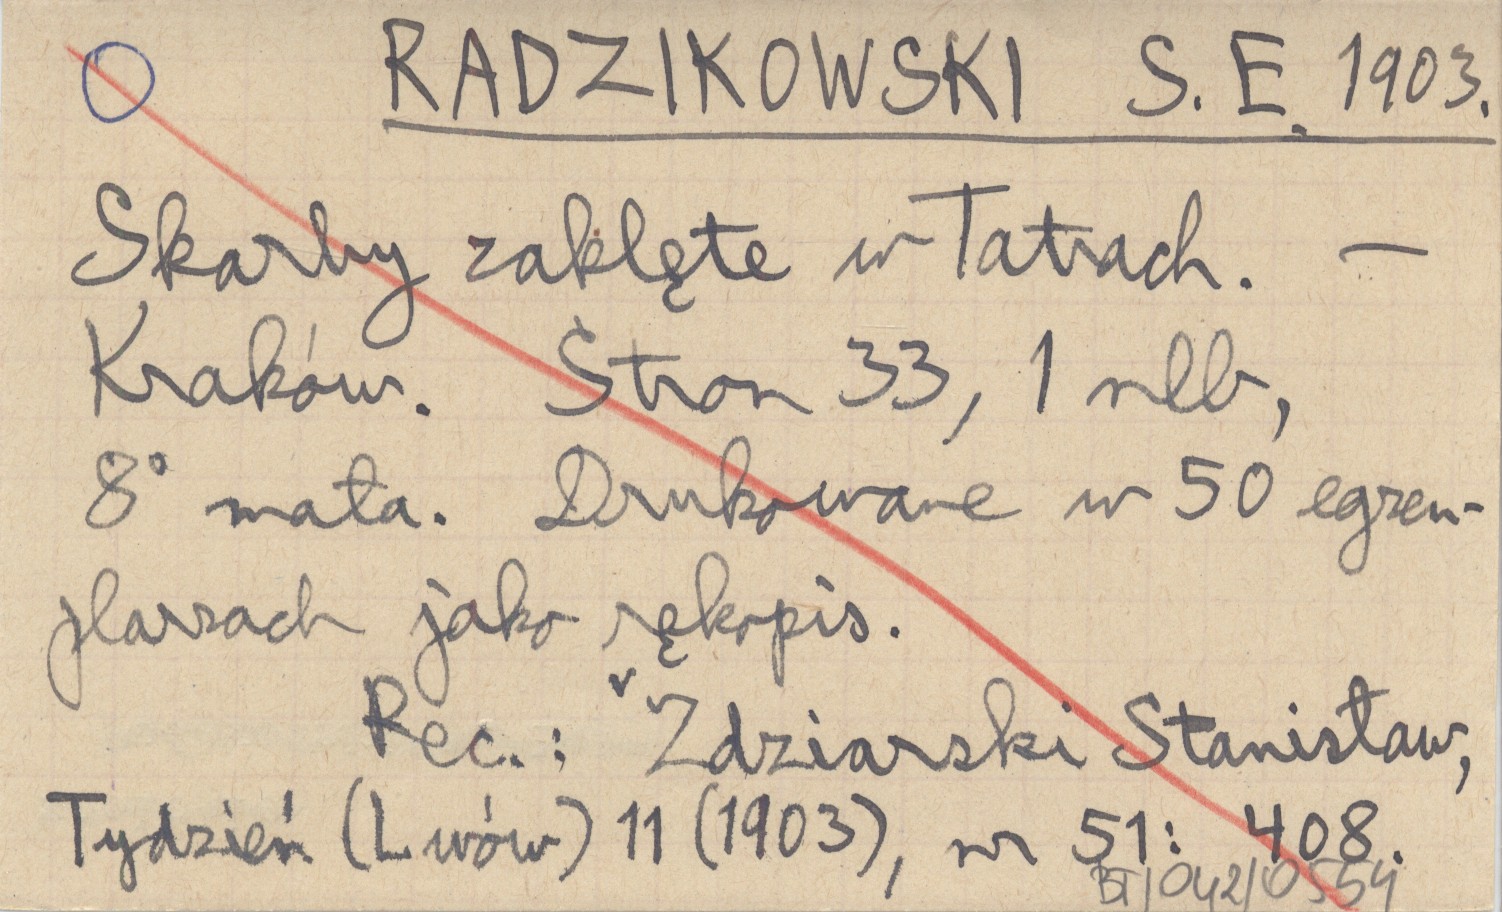 RADZIKOWSKI S. E. 1903.
Skarby zaklęte w Tatrach. —
Kraków. Stron 33, 1 nlb,
8° mała. Drukowane w 50 egzem-
plarzach jako rękopis.
Rec.: Zdziarski Stanisław,
Tydzień (Lwów) 11 (1903), nr 51: 408.
BT/042/0554